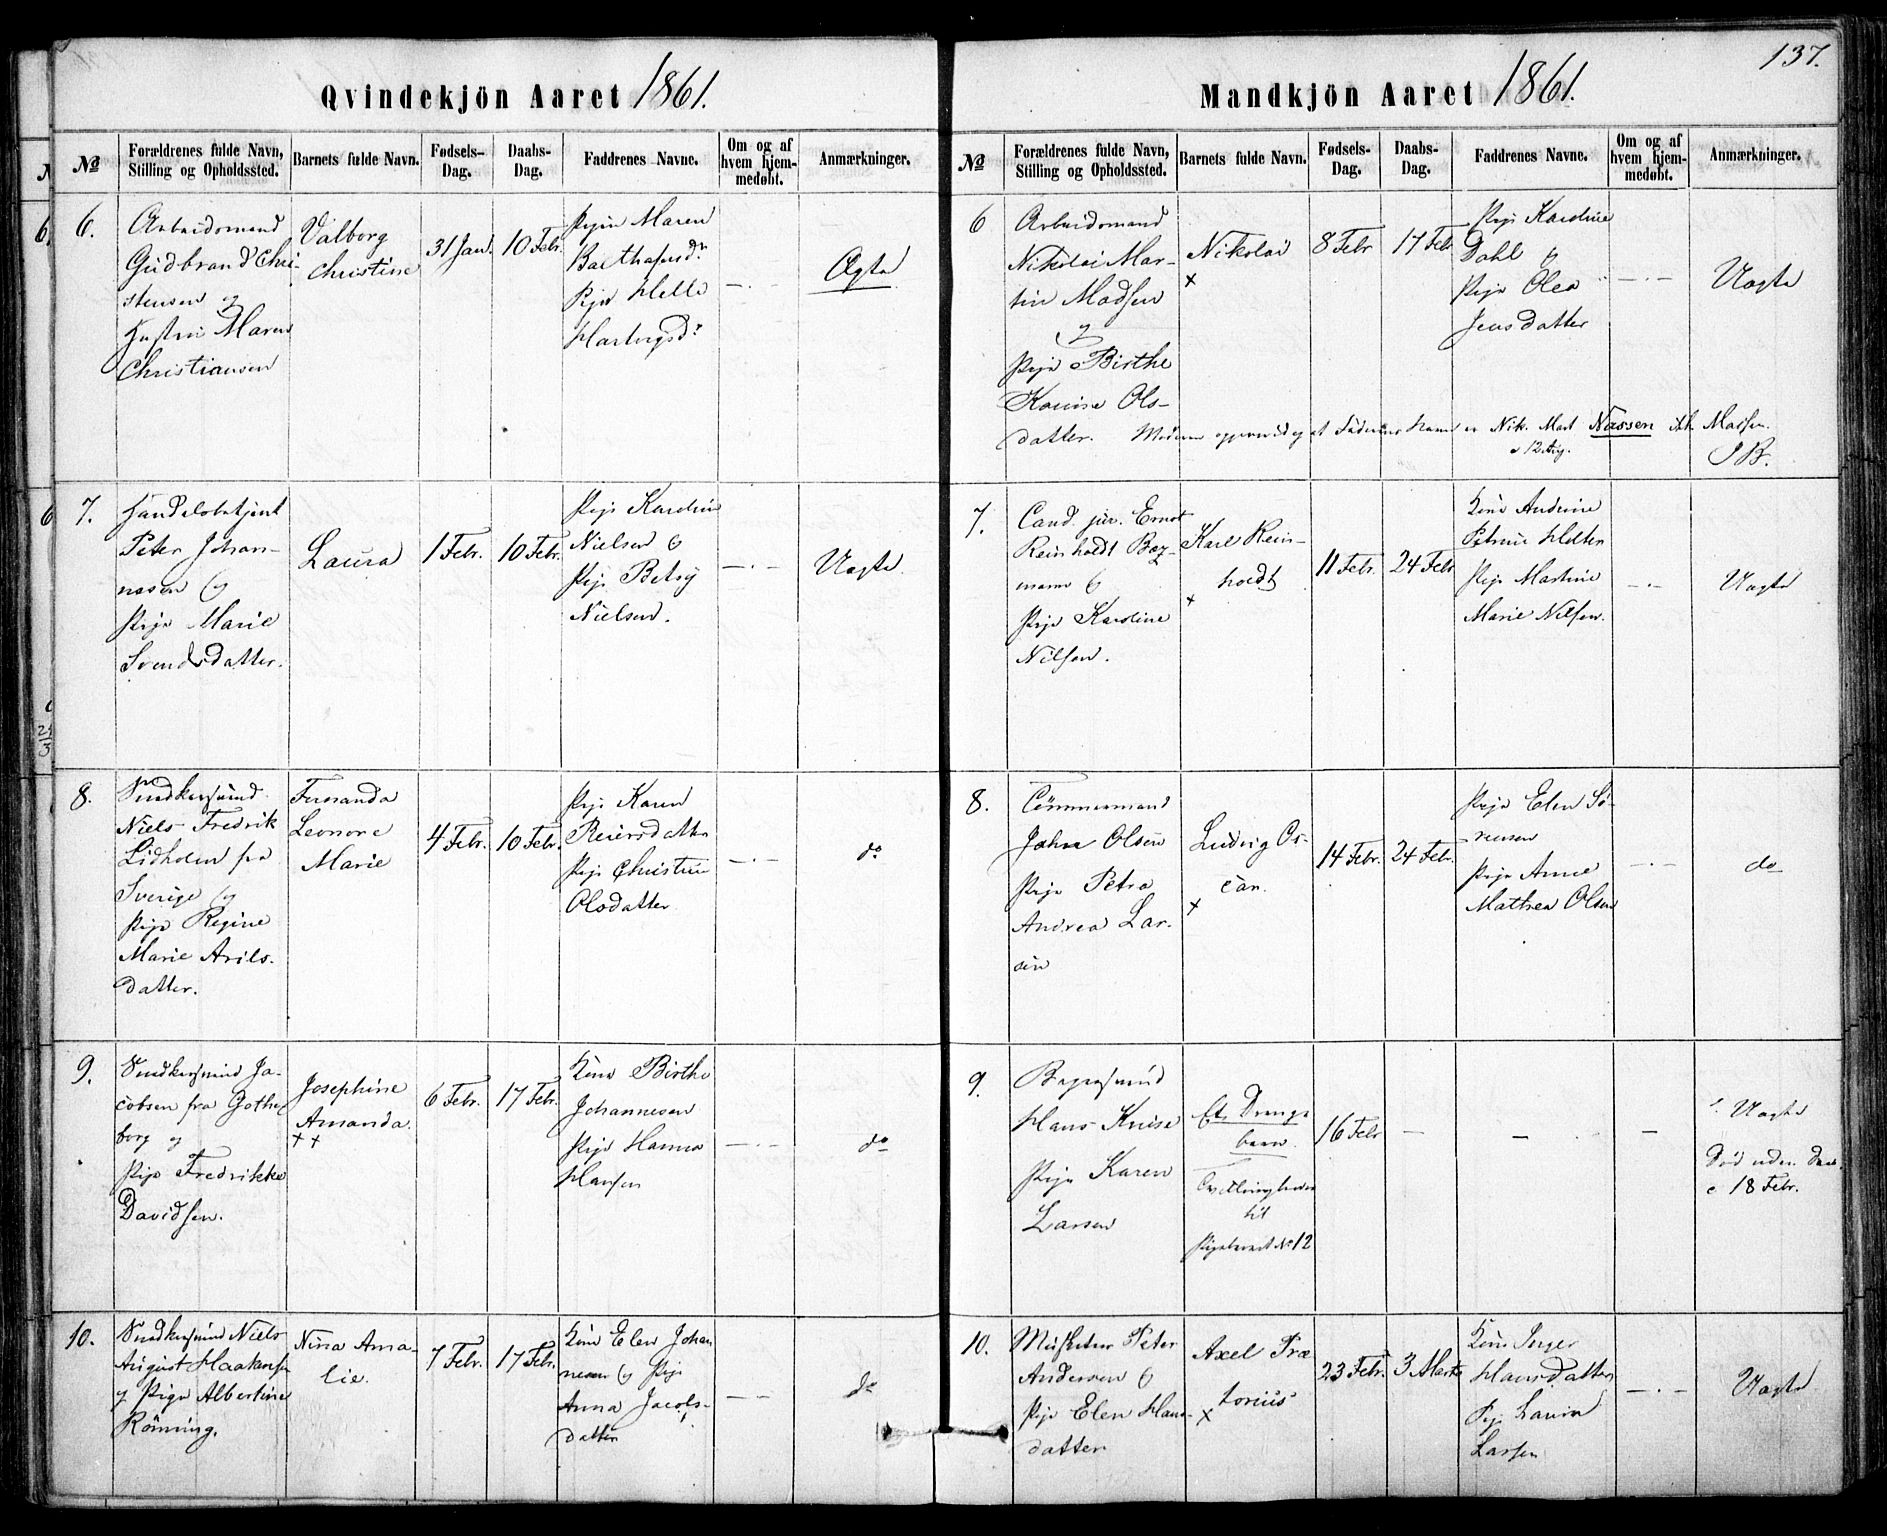 137.
Qvindekjön Aaret 1861.
№
Forældrenes fulde Navn,
Stilling og Opholdssted.
Barnets fulde Navn.
Fødsels-
Dag.
Daabs-
Dag.
Faddrenes Navne.
Om og af
hvem hjem-
medøbt.
Anmærkninger.
6.
Arbeidsmand
Gudbrand Chri-
stensen og
Hustru Maren
Christiansen
Valborg
Christine
31 Jan.
10 Febr.
Pigen Maren
Balthasersdr
Pige Helle
Hartvigsdr
— . —
Ægte
7.
Handelsbetjent
Peter Johan-
nesen og
Pige Marie
Svendsdatter.
Laura
1 Febr.
10 Febr.
Pige Karoline
Nielsen og
Pige Betsy
Nielsen.
— . —
Uægte.
8.
Snedkersvend
Niels Fredrik
Lidholm fra
Sverige og
Pige Regine
Marie Arils-
datter.
Fernanda
Leonore
Marie
4 Febr.
10 Febr.
Pige Karen
Reiersdatter
Pige Christine
Olsdatter
— . —
do
9.
Snedkersvend Ja-
cobsen fra Gothe-
borg og
Pige Fredrikke
Davidsen.
Josephine
Amanda.
++
6 Febr.
17 Febr.
Kone Birthe
Johannesen
Pige Hanna
Hansen
— . —
do
10.
Snedkersvend Niels
August Haakensen
og Pige Albertine
Rönning.
Nina Ama-
lie.
7 Febr.
17 Febr.
Kone Elen Johan
nesen og Pige
Anna Jacobs-
datter
— —
do
Mandkjön Aaret 1861.
№
Forældrenes fulde Navn,
Stilling og Opholdssted.
Barnets fulde Navn.
Fødsels-
Dag.
Daabs-
Dag.
Faddrenes Navne.
Om og af
hvem hjem-
medøbt.
Anmærkninger.
6
Arbeidsmand
Nikolai Mar-
tin Madsen
og
Pige Birthe
Karine Ols-
datter.
Nikolai
+
8 Febr
17 Febr
Pige Karoline
Dahl og
Pige Olea
Jensdatter
— . —
Uægte
Moderen opgiver at Faderens Navn er Nik. Mart Nassen ikke Madsen.
12 Aug.
7.
Cand. jur. Ernst
Reinholdt Boy-
mann og
Pige Karoline
Nilsen.
Karl Rein-
holdt
+
11 Febr.
24 Febr
Kone Andrine
Petrine Holter
Pige Martine
Marie Nilsen.
— . —
Uægte
8.
Tömmermand
Johan Olsen
Pige Petra
Andrea Lar-
sen
Ludvig Os-
car.
+
14 Febr.
24 Febr.
Pige Elen Sö-
rensen
Pige Anne
Mathea Olsen
— . —
do
9.
Bagersvend
Hans Kruse
Pige Karen
Larsen
Et Drenge
barn.
Tvillingbroder
til
Pigebarnet No 12
16 Febr
—
—
—
Uægte
Död uden Daab
18 Febr.
10.
Musketer Peter
Andersen og
Pige Elen Hans-
datter
Axel Præ
torius
+
23 Febr.
3 Marts
Kone Inger
Hansdatter
Pige Laura
Larsen
— . —
Uægte